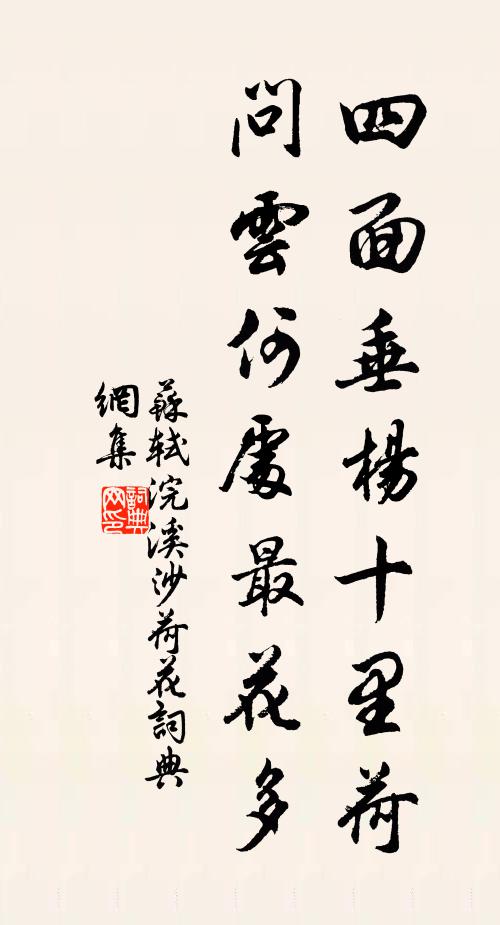 四面垂楊十里荷
問雲何處最花多
蘇軾浣溪沙荷花詞典
網集
詞典
网印